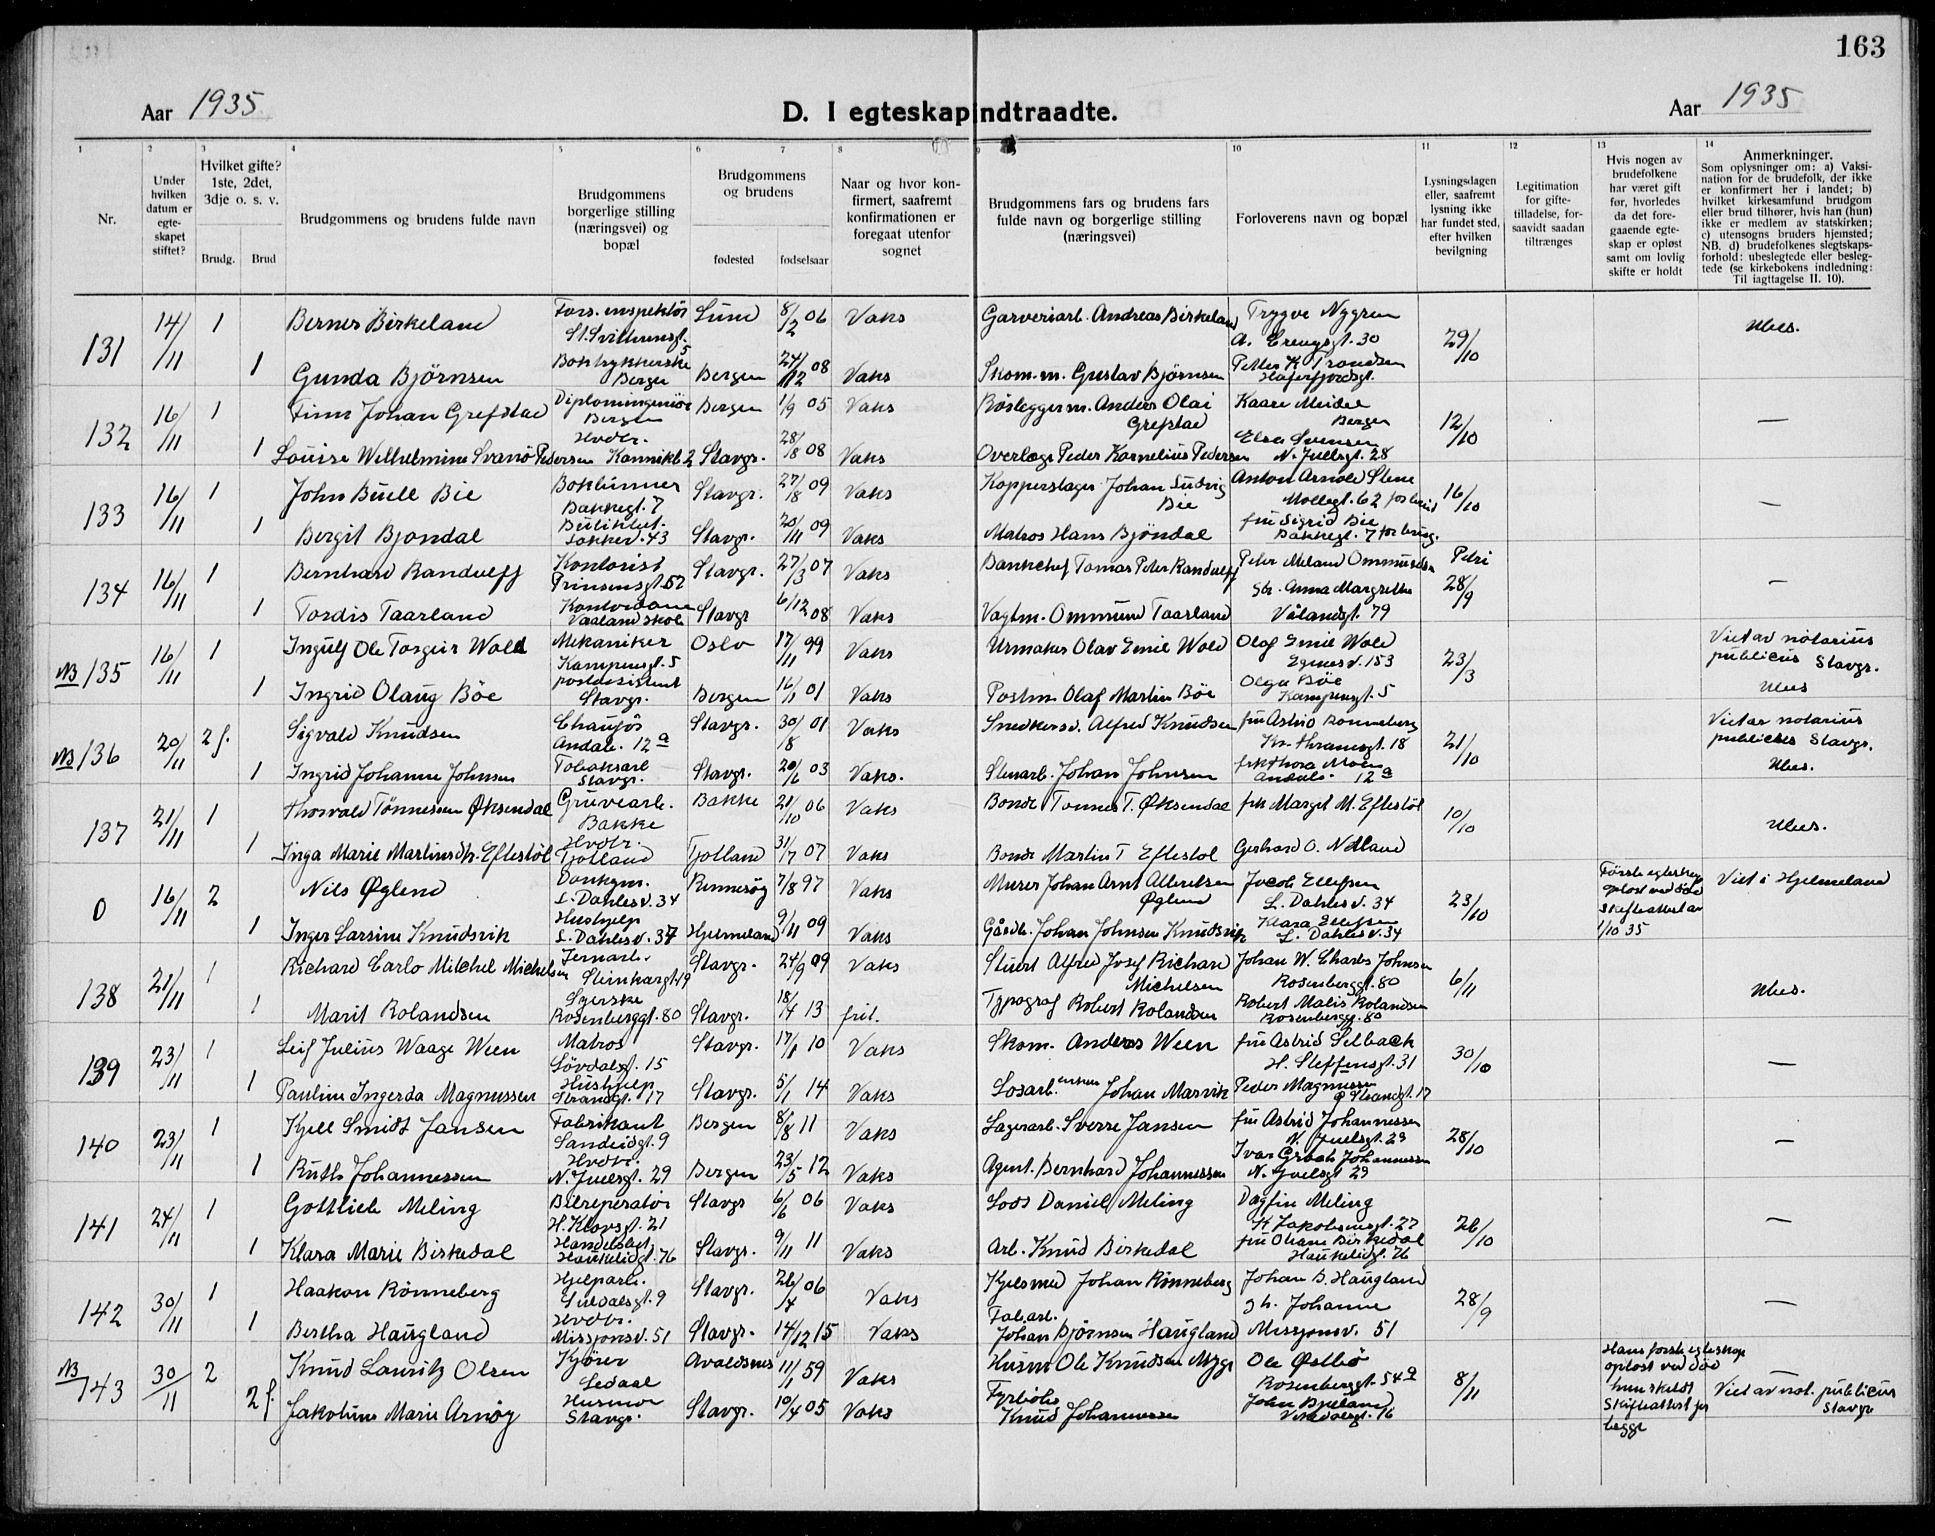 163
Aar 1935
D. I egteskap indtraadte.
Aar 1935
1 2 3 4 5 6 7 8 9 10 11 12 13 14
Nr.
Under hvilken datum er egte-skapet stiftet?
Hvilket gifte? 1ste, 2det, 3dje o. s. v.
Brudg. Brud
Brudgommens og brudens fulde navn
Brudgommens borgerlige stilling (næringsvei) og bopæl
Brudgommens og brudens
fødested fødselsaar
Naar og hvor kon-firmert, saafremt konfirmationen er foregaat utenfor sognet
Brudgommens fars og brudens fars fulde navn og borgerlige stilling (næringsvei)
Forloverens navn og bopæl
Lysningsdagen eller, saafremt lysning ikke har fundet sted, efter hvilken bevilgning
Legitimation for gifte-tilladelse, for-saavidt saadan tiltrænges
Hvis nogen av brudefolkene har været gift før, hvorledes da det fore-gaaende egte-skap er opløst samt om lovlig skifte er holdt
Anmerkninger.
Som oplysninger om: a) Vaksi-nation for de brudefolk, der ikke er konfirmert her i landet; b) hvilket kirkesamfund brudgom eller brud tilhører, hvis han (hun) ikke er medlem av statskirken; c) utensogns bruders hjemsted; NB. d) brudefolkenes slegtskaps-forhold: ubeslegtede eller besleg-tede (se kirkebokens indledning: Til iagttagelse II. 10).
131 14/11 1 Berner Birkeland Fors. inspektør St. Svithunsgt. 5 Lund 8/2 06 Vaks Garveriarb. Andreas Birkeland Trygve Nygren 30 29/10 Ubes.
1 Gunda Bjørnsen Boktrykkerske Bergen Bergen 24/12 08 Vaks Skom.m. Gustav Bjørnsen Petter K Trondsen Hafrsfjordsgt.
132 16/11 1 Finn Johan Grefstad Diplomingeniør Bergen Bergen 1/9 05 Vaks Rørleggerm. Anders Olai Grefstad Kaare Meidel Bergen 12/10 —
1 Louise Wilhelmine Svanø Pedersen Hvdtr. Kannikbt. 2 Stavgr. 28/8 08 Vaks Overlæge Peder Kornelius Pedersen Elsa Svensen N. Juelsgt. 28
133 16/11 1 John Buell Bie Bokbinner Bakkegt. 7 Stavgr. 27/8 09 Vaks Kopperslager Johan Ludvig Bie Anton Arnold Stene Møllegt. 62 16/10 —
1 Bergit Bjondal Butikkbet. 43 Stavgr. 20/11 09 Vaks Matros Hans Bjöndal fru Sigrid Bie Bakkegt. 7 for brudg.
134 16/11 1 Bernhard Randulff Kontorist Prinsensgt. 52 Stavgr. 27/3 07 Vaks Bankchef Tomas Peter Randulff Peter Meland Ommundsen Petri 28/9 —
1 Tordis Taarland Kontordame Vaaland skole Stavgr 6/12 08 Vaks Vagtm. Ommund Taarland Anna Margrethe Vålandsgt. 79
NB 135 16/11 1 Ingulf Ole Torgeir Wold Mekaniker Kampensgt. 5 Oslo 17/11 99 Vaks Urmaker Olav Emil Wold Olaf Emil Wold Egnesv. 153 23/3 Viet av notarius publicus Stavgr. Ubes
1 Ingrid Olaug Böe postassistent Stavgr. Bergen 16/1 01 Vaks Postm. Olaf Martin Böe Olga Böe Kampensgt. 5
NB 136 20/11 2 f. Sigvald Knudsen Chauför 12a Stavgr. 30/8 01 Vaks Snedkersv. Alfred Knudsen fru Astrid Rønneberg 18 21/10 Viet av notarius publicus Stavgr. Ubes.
1 Ingrid Johanne Johnsen Tobaksarb Stavgr. Stavgr. 20/6 03 Vaks. Stenarb. Johan Johnsen frk Thora Moen 12a
137 21/11 1 Thorvald Tønnessen Øksendal Gruvearb. Bakke Bakke 21/10 06 Vaks Bonde Tønnes T. Øksendal frk Margit M. Eftestöl 10/10 Ubes.
1 Inga Marie Martinsdtr. Eftestöl Hvdtr. Fjotland Fjotland 31/7 07 Vaks Bonde Martin T Eftestol Gerhard O. Netland
0 16/11 2 Nils Øglend L. Dahlesv. 34 Rennesøy 7/8 97 Vaks Murer Johan Arnt Albretsen Øglend Jacob Ellefsen L. Dahlesv. 34 23/10 Første egteskap opløst ved død Skifteattest av 1/10 35 Viet i Hjelmeland
1 Inger Larsine Knudsvik Hushjelp L. Dahlesv. 37 Hjelmeland 9/11 09 Vaks Gårdb. Johan Johnsen Knudsvik Klara Ellefsen L. Dahlesv. 34
138 21/11 1 Richard Carlo Mitchel Michelsen Jernarb. Steinkargt. 49 Stavgr. 24/9 09 Vaks Stuert Alfred Josef Richard Michelsen Johan W. Charles Johnsen Rosenberggt. 80 6/11 Ubes.
1 Marit Rolandsen Syerske Rosenberggt. 80 Stavgr. 18/4 13 frit. Typograf Robert Rolandsen Robert Malis Rolandsen Rosenberggt. 80
139 23/11 1 Leif Julius Waage Ween Matros Lövdalsgt. 15 Stavgr. 17/1 10 Vaks Skom. Anders Ween fru Astrid Selback H. Steffensgt. 31 30/10 —
1 Pauline Ingerda Magnussen Hushjelp Strandgt. 17 Stavgr. 5/1 14 Vaks Losarb. Johan Marvik Peder Magnussen Ø Strandgt. 17
140 23/11 1 Kjell Smidt Jansen Fabrikant Sandeidgt. 9 Bergen 8/8 11 Vaks Lagerarb. Sverre Jansen fru Astrid Johannessen N. Juelsgt. 29 28/10 —
1 Ruth Johannessen Hvdtr. N. Juelsgt. 29 Bergen 23/5 12 Vaks Agent. Bernhard Johannessen Ivar Johannessen N. Juelsgt 29
141 24/11 1 Gottlieb Meling Bilreperatör H. Klovsgt. 21 Stavgr 6/6 06 Vaks Loos Daniel Meling Dagfin Meling K. Jakobsensgt. 27 26/10 —
1 Klara Marie Birkedal Handelsbet. Haukeligt. 76 Stavgr. 9/11 11 Vaks Arb. Knud Birkedal fru Birkedal Haukeligt. 76
142 30/11 1 Haakon Rønneberg Hjelparb. Sirdalsgt. 9 Stavgr. 26/4 06 Vaks Kjelsmed Johan Rønneberg Johan B. Haugland 28/9 —
1 Bertha Haugland Hvdtr. Missjonsv. 51 Stavgr. 14/12 15 Vaks Fabarb. Johan Bjørnsen Haugland Johanne Missjonsv. 51
NB 143 30/11 2 Knud Lauritz Olsen Kjører Ledaal Avaldsnes 11/1 59 Vaks Husm Ole Knudsen Myge Ole Østbø Rosenberggt. 54a 8/11 Hans første egteskap opløst ved død hun skildt Skifteattest for begge — Viet av not. publicus Stavgr
2 f. Jakobine Marie Arnøy Husmor Stavgr. Stavgr. 10/4 05 Vaks Fyrböter Knud Johannessen John Bjelland Vikedalsgt. 16